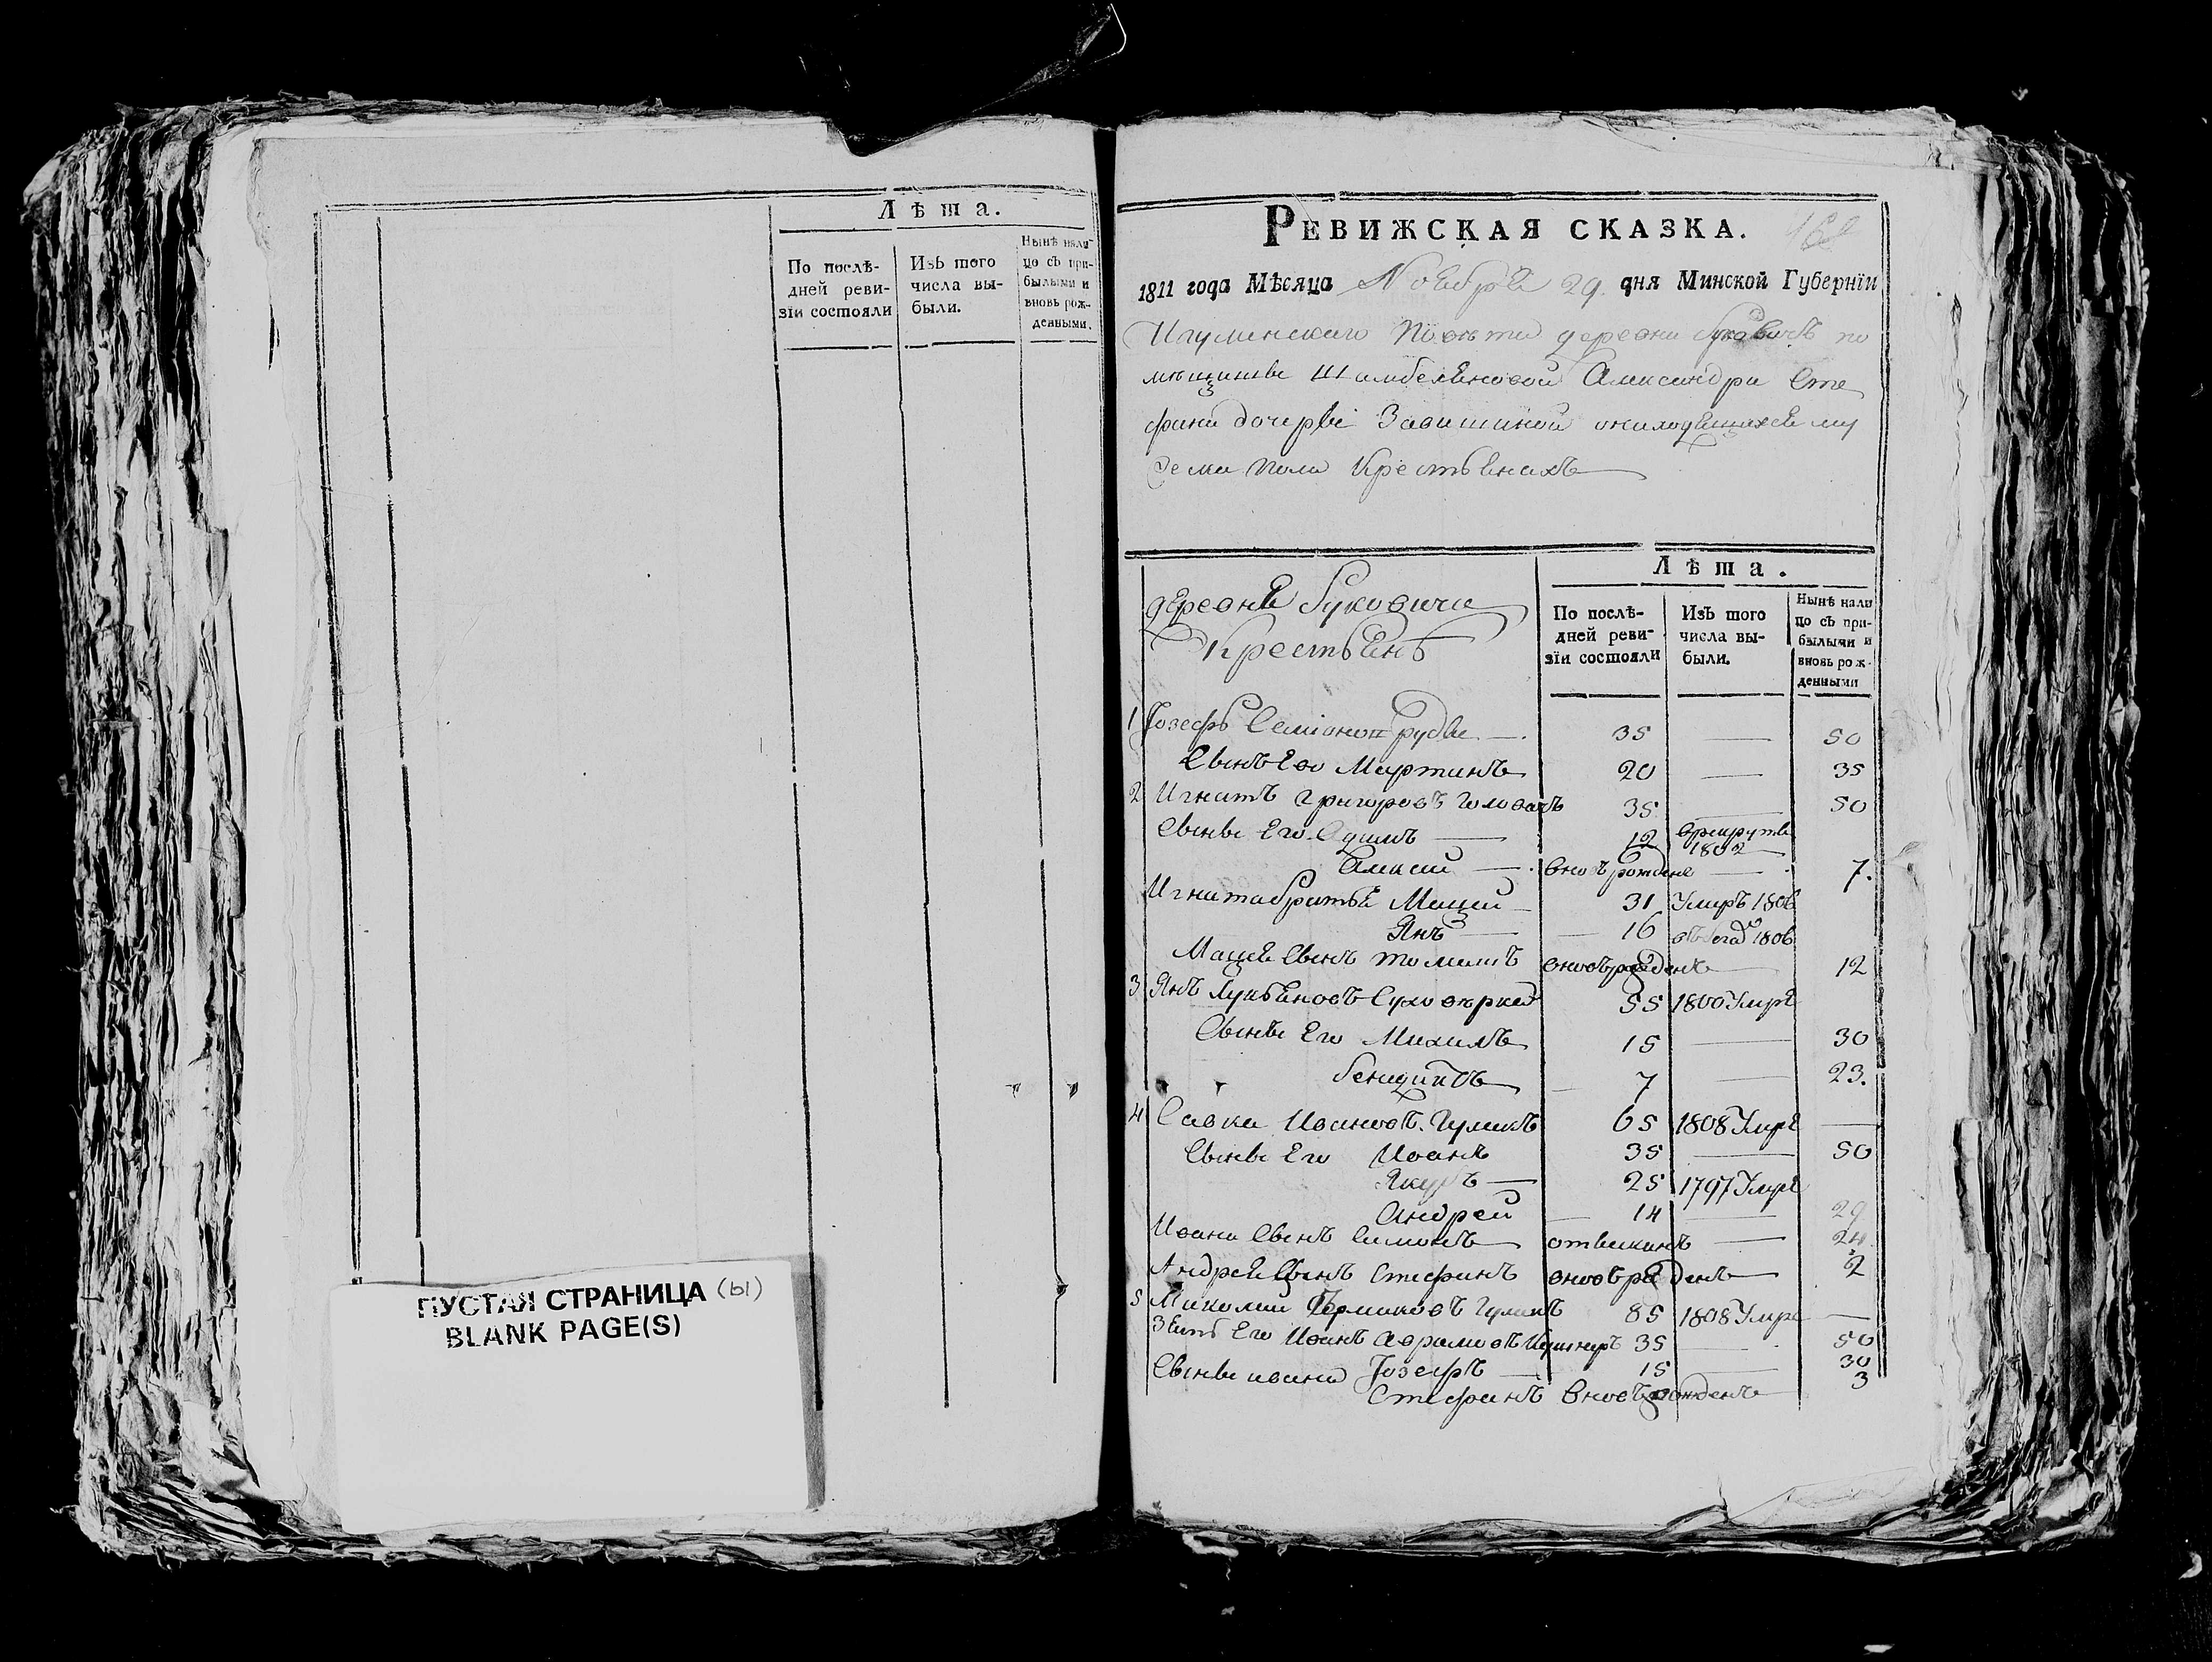 Лѣта.
По послѣ-
дней реви-
зїи состояли
Изъ того
числа вы-
были.
Нынѣ нали-
цо съ при-
былыми и
вновь рож-
денными.
ПУСТАЯ СТРАНИЦА (ы)
BLANK PAGE(S)
РЕВИЖСКАЯ СКАЗКА.
1811 года Мѣсяца Ноября 29. дня Минской Губернїи
Игуменскаго Повѣта деревни по
мѣщицы Шамбеляновой Александры Сте
фана дочери Завишиной о находящихся му
жеска пола Крестьянахъ
Лѣта.
деревня Буковичи
Крестьянъ
По послѣ-
дней реви-
зїи состояли
Изъ того
числа вы-
были.
Нынѣ нали
цо съ при-
былыми и
вновь рож-
денными
1 Іозефъ — 35 — 50
Сынъ Его Мартинъ 20 — 35
2 Игнатъ Григоровъ Головачъ 35 — 50
Сыны Его Адамъ — 12 врекруты 1802
Алексей — вновь рожденъ — 7.
Игната братья Мацей 31 Умеръ 1806
Янъ — 16 1806
Мацея Сынъ Томашъ вновърожденъ 12
3 Янъ Лукьяновъ 55 1800 Умръ
Сыны Его Михалъ 15 — 30
Бенедиктъ 7 — 23.
4 Савка Ивановъ Гуминъ 65 1808 Умръ —
Сыны Его Иванъ 35 — 50
Якубъ — 25 1797 Умръ
Андрей — 14 — 29
Ивана Сынъ Симонъ отысканъ — 24
Андрея Сынъ Стефанъ вновърожденъ 2
5 Миколай 85 1808 Умръ —
Зять Его Иванъ Аврамовъ 35 — 50
Сыны ивана Іозефъ — 15 — 30
Стефанъ вновърожденъ 3